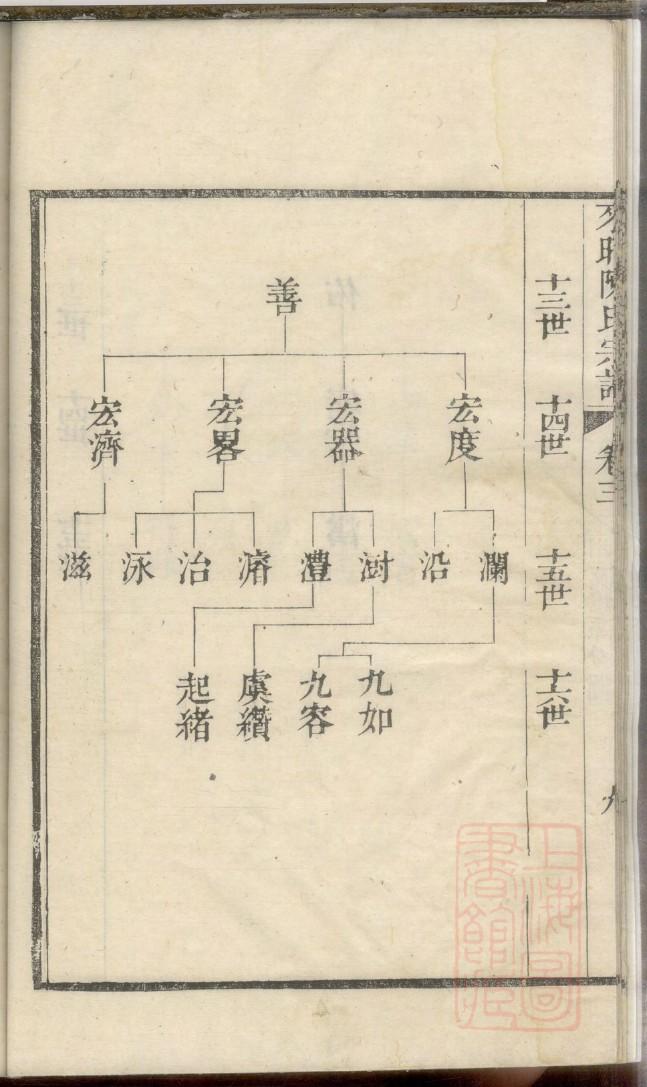 陳氏宗譜
卷三
九
十三世
善
十四世
宏度
宏器
宏畧
宏濟
十五世
瀾
沿
澍
澧
濬
治
泳
滋
十六世
九如
九容
虞纘
起緒
上海圖書館藏